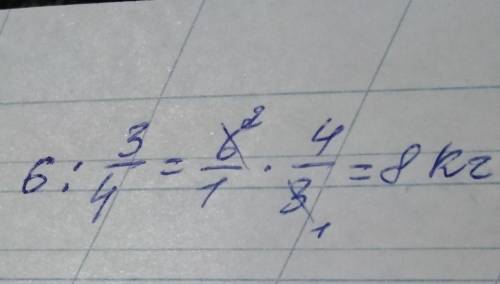 6 : 3/4 = 6/1 2 · 4/3 1 = 8 кг